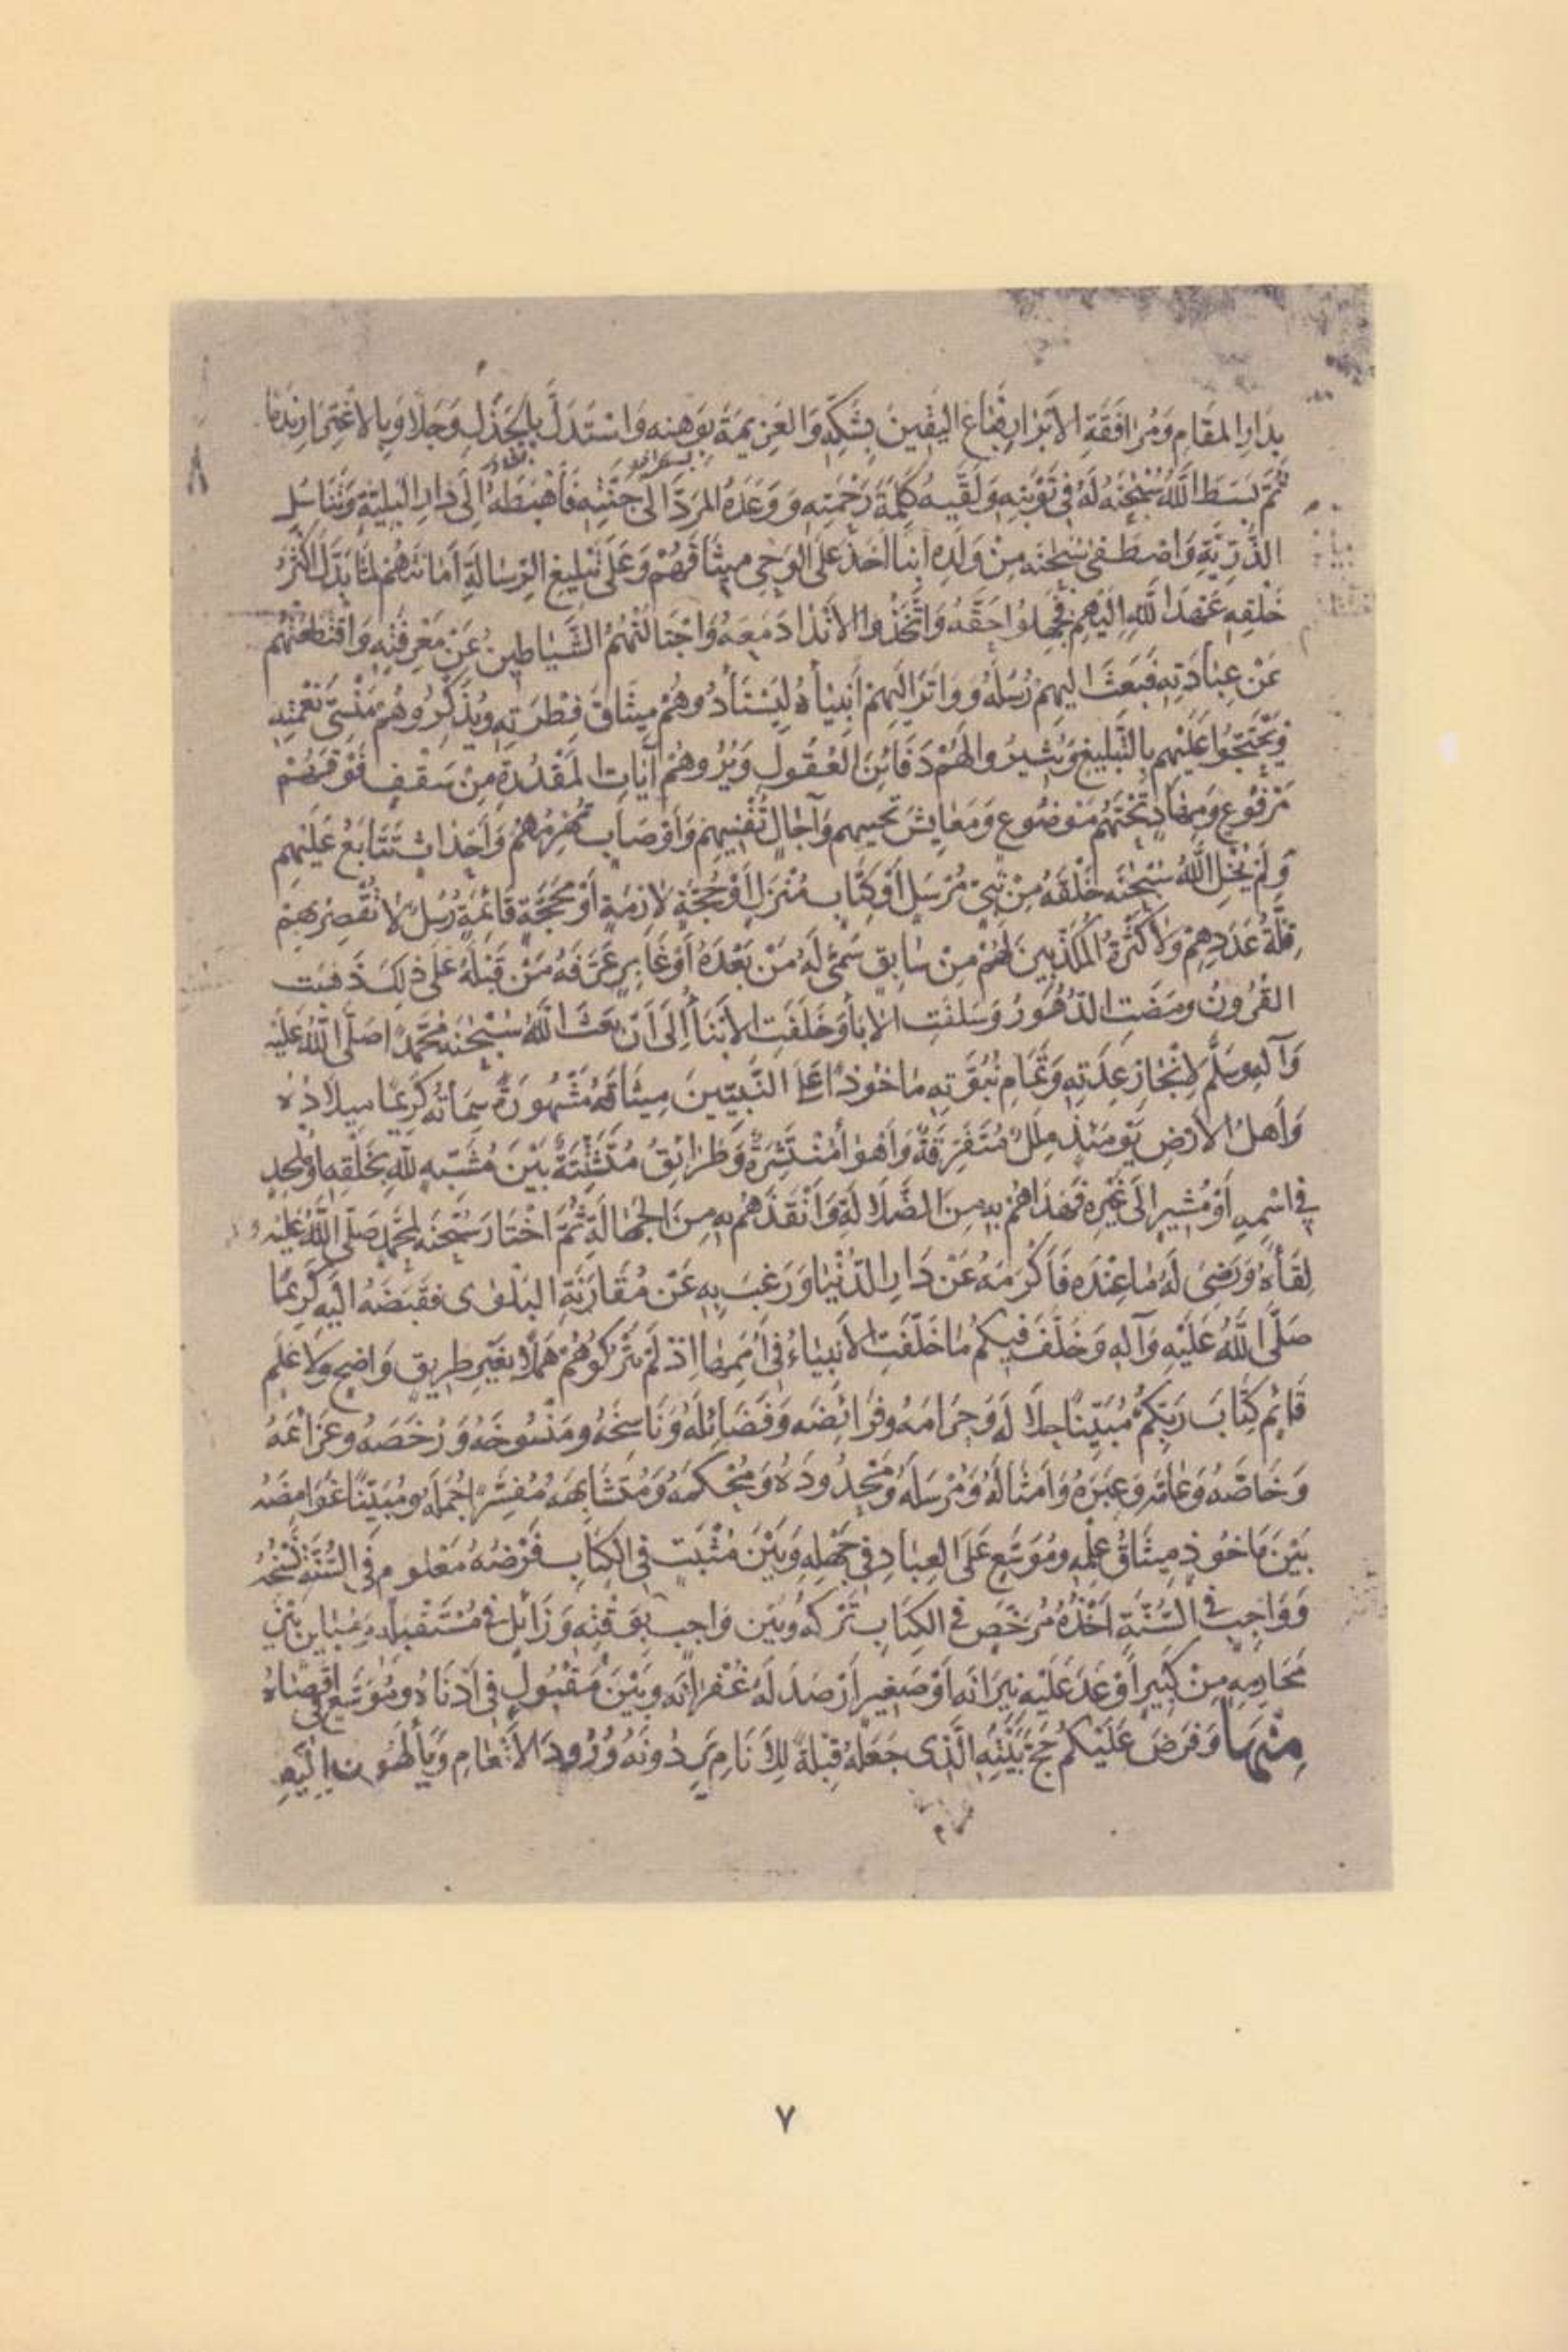 بِدَارِ المَقَامِ وَمُرَافَقَةِ الأَبْرَارِ فَبَاعَ اليَقِينَ بِشَكِّهِ وَالعَزِيمَةَ بِوَهْنِهِ وَاسْتَبْدَلَ بِالجَذَلِ وَجَلًا وَبِالاغْتِرَارِ نَدَمًا
ثُمَّ بَسَطَ اللَّهُ سُبْحٰنَهُ لَهُ فِي تَوْبَتِهِ وَلَقَّيهُ كَلِمَةَ رَحْمَتِهِ وَوَعَدَهُ المَرَدَّ اِلَى جَنَّتِهِ فَأَهْبَطَهُ اِلَى دَارِ البَلِيَّةِ وَتَنَاسُلِ
الذُّرِّيَّةِ وَاصْطَفَى سُبْحٰنَه مِنْ وَلَدِهِ أَنْبِيَا أَخَذَ عَلَى الوَحْيِ مِيثَاقَهُمْ وَعَلَى تَبْلِيغِ الرِّسَالَةِ أَمَانَتَهُمْ لَمَّا بَدَّلَ أَكْثَرُ
خَلْقِهِ عَهْدَ اللَّهِ اِلَيْهِمْ فَجَهِلُوا حَقَّهُ وَاتَّخَذُوا الأَنْدَادَ مَعَهُ وَاجْتَالَتْهُمُ الشَّيَاطِينُ عَنْ مَعْرِفَتِهِ وَاقْتَطَعَتْهُمْ
عَنْ عِبَادَتِهِ فَبَعَثَ اِلَيهِمْ رُسُلَهُ وَوَاتَرَ اِلَيهِمْ أَنْبِيَأهُ لِيَسْتَأْدُوهُمْ مِيثَاقَ فِطْرَتِهِ وَيُذَكِّرُوهُمْ مَنْسِيَّ نِعْمَتِهِ
وَيَحْتَجُّوا عَلَيْهِمْ بِالتَّبْلِيغِ وَيُثِيرُوا لَهُمْ دَفَائِنَ العُقُولِ وَيُرُوهُمْ آيَاتِ المَقْدُرَةِ مِنْ سَقْفٍ فَوْقَهُمْ
مَرْفُوعٍ وَمِهَادٍ تَحْتَهُمْ مَوْضُوعٍ وَمَعَايِشَ تُحْيِيهِم وَآجَالٍ تُفْنِيهِمْ وَأَوْصَابٍ تُهْرِمُهُمْ وَأَحْدَاثٍ تَتَابَعُ عَلَيْهِم
وَلَمْ يُخْلِ اللَّهُ سُبْحٰنَه خَلْقَهُ مِنْ نَبِيٍّ مُرْسَلٍ أَوْ كِتَابٍ مُنْزَلٍ أَوْ حُجَّةٍ لَازِمَةٍ أَوْ مَحَجَّةٍ قَائِمَةٍ رُسُلٌ لَا تُقَصِّرُ بِهِمْ
قِلَّةُ عَدَدِهِمْ وَلَا كَثْرَةُ المُكَذِّبِينَ لَهُمْ مِنْ سَابِقٍ سُمِّيَ لَهُ مَنْ بَعْدَهُ أَوْ غَابِرٍ عَرَّفَهُ مَنْ قَبْلَهُ عَلَى ذٰلِكَ ذَهَبَت
القُرُونُ وَمَضَتِ الدُّهُورُ وَسَلَفَتِ الآبَأُ وَخَلَفَتِ الأَبْنَأُ اِلَى أَنْ بَعَثَ اللَّهُ سُبْحٰنَهُ مُحَمَّدًا صَلَّى اللَّهُ عَلَيْهِ
وَآلِهِ وَسَلَّمَ لِاِنْجَازِ عِدَتِهِ وَتَمَامِ نُبُوَّتِهِ مَاخُوذًا عَلَى النَّبِيِّينَ مِيثَاقُهُ مَشْهُورَةً سِمَاتُهُ كَرِيمًا مِيلَادُهُ
وَأَهْلُ الأَرْضِ يَوْمَئِذٍ مِلَلٌ مُتَفَرِّقَةٌ وَأَهْوَأٌ مُنْتَشِرَةٌ وَطَرَائِقُ مُتَشَتِّتَةٌ بَيْنَ مُشَبِّهٍ لِلَّهِ بِخَلْقِهِ اَوْ مُلْحِدٍ
فِي اسْمِهِ أَوْ مُشِيرٍ اِلَى غَيْرِهِ فَهَدَاهُمْ بِهِ مِنَ الضَّلَالَةِ وَأَنْقَذَهُمْ بِهِ مِنَ الجَهَالَةِ ثُمَّ اخْتَارَ سُبْحٰنَه لِمُحَمَّدٍ صَلَّى اللَّهُ عَلَيْهِ
لِقَأهُ وَرَضِيَ لَهُ مَا عِنْدَهُ فَأَكْرَمَهُ عَنْ دَارِ الدُّنْيَا وَرَغِبَ بِهِ عَنْ مُقَارَنَةِ البَلْوَى فَقَبَضَهُ اِلَيهِ كَرِيمًا
صَلَّى اللَّهُ عَلَيْهِ وَآلِهِ وَخَلَّفَ فِيكُمْ مَا خَلَّفَتِ الأَنْبِيَاءُ فِي أُمَمِهَا اِذْ لَمْ يَتْرُكُوهُمْ هَمَلًا بِغَيْرِ طَرِيقٍ وَاضِحٍ وَلَا عَلَمٍ
قَائِمٍ كِتَابَ رَبِّكُمْ مُبَيِّنًا حَلَالَهُ وَحَرَامَهُ وَفَرَائِضَه وَفَضَائِلَهُ وَنَاسِخَهُ وَمَنْسُوخَهُ وَرُخَصَهُ وَعَزَائِمَهُ
وَخَاصَّهُ وَعَامَّهُ وَعِبَرَهُ وَأَمْثَالَهُ وَمُرْسَلَهُ وَمَحْدُودَهُ وَمُحْكَمَهُ وَمُتَشَابِهَهُ مُفَسِّرًا جُمَلَه وَمُبَيِّنًا غَوَامِضَهُ
بَيْنَ مَاخُوذٍ مِيثَاقُ عِلْمِهِ وَمُوَسَّعٍ عَلَى العِبَادِ فِي جَهْلِهِ وَبَيْنَ مُثْبَتٍ فِي الكِتَابِ فَرْضُهُ مَعْلُومٍ فِي السُّنَّةِ نَسْخُهُ
وَوَاجِبٍ فِي السُّنَّةِ أَخْذُهُ مُرَخَّصٍ فِي الكِتَابِ تَرْكُهُ وَبَيْنَ وَاجِبٍ بِوَقْتِهِ وَزَائِلٍ فِي مُسْتَقْبَلِهِ وَمُبَايَنٍ بَيْنَ
مَحَارِمِهِ مِنْ كَبِيرٍ أَوْعَدَ عَلَيْهِ نِيرَانَه أَوْ صَغِيرٍ أَرْصَدَ لَهُ غُفْرَانَه وَبَيْنَ مَقْبُولٍ فِي أَدْنَاهُ وَمُوَسَّعٍ فِي أَقْصَاهُ
مِنْهَا وَفَرَضَ عَلَيْكُمْ حَجَّ بَيْتِهِ الَّذِي جَعَلَهُ قِبْلَةً لِلأَنَامِ يَرِدُونَهُ وُرُودَ الأَنْعَامِ وَيَأْلَهُونَ اِلَيْهِ
٧